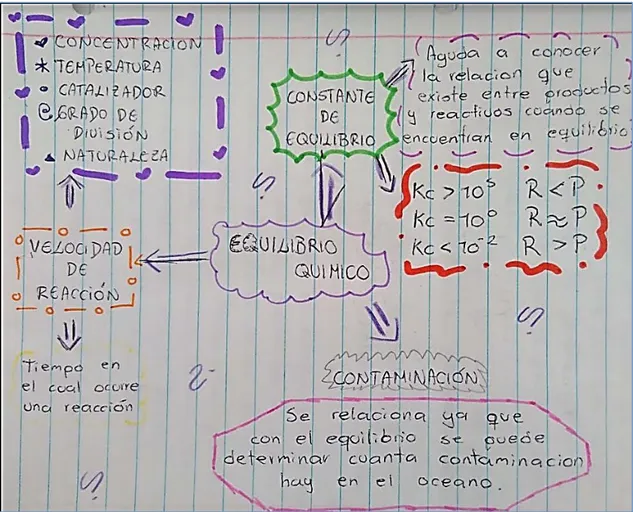 CONCENTRACION
* TEMPERATURA
CATALIZADOR
GRADO DE
DIVISIÓN
NATURALEZA
CONSTANTE
DE
EQUILIBRIO
Ayuda a conocer
la relacion que
existe entre productos
y reactivos cuando se
encuentran en equilibrio
Kc > 10⁵ R < P
Kc = 10⁰ R ≈ P
Kc < 10⁻² R > P
EQUILIBRIO
QUIMICO
VELOCIDAD
DE
REACCIÓN
Tiempo en
el cual ocurre
una reacción
CONTAMINACIÓN
Se relaciona ya que
con el equilibrio se puede
determinar cuanta contaminacion
hay en el oceano.